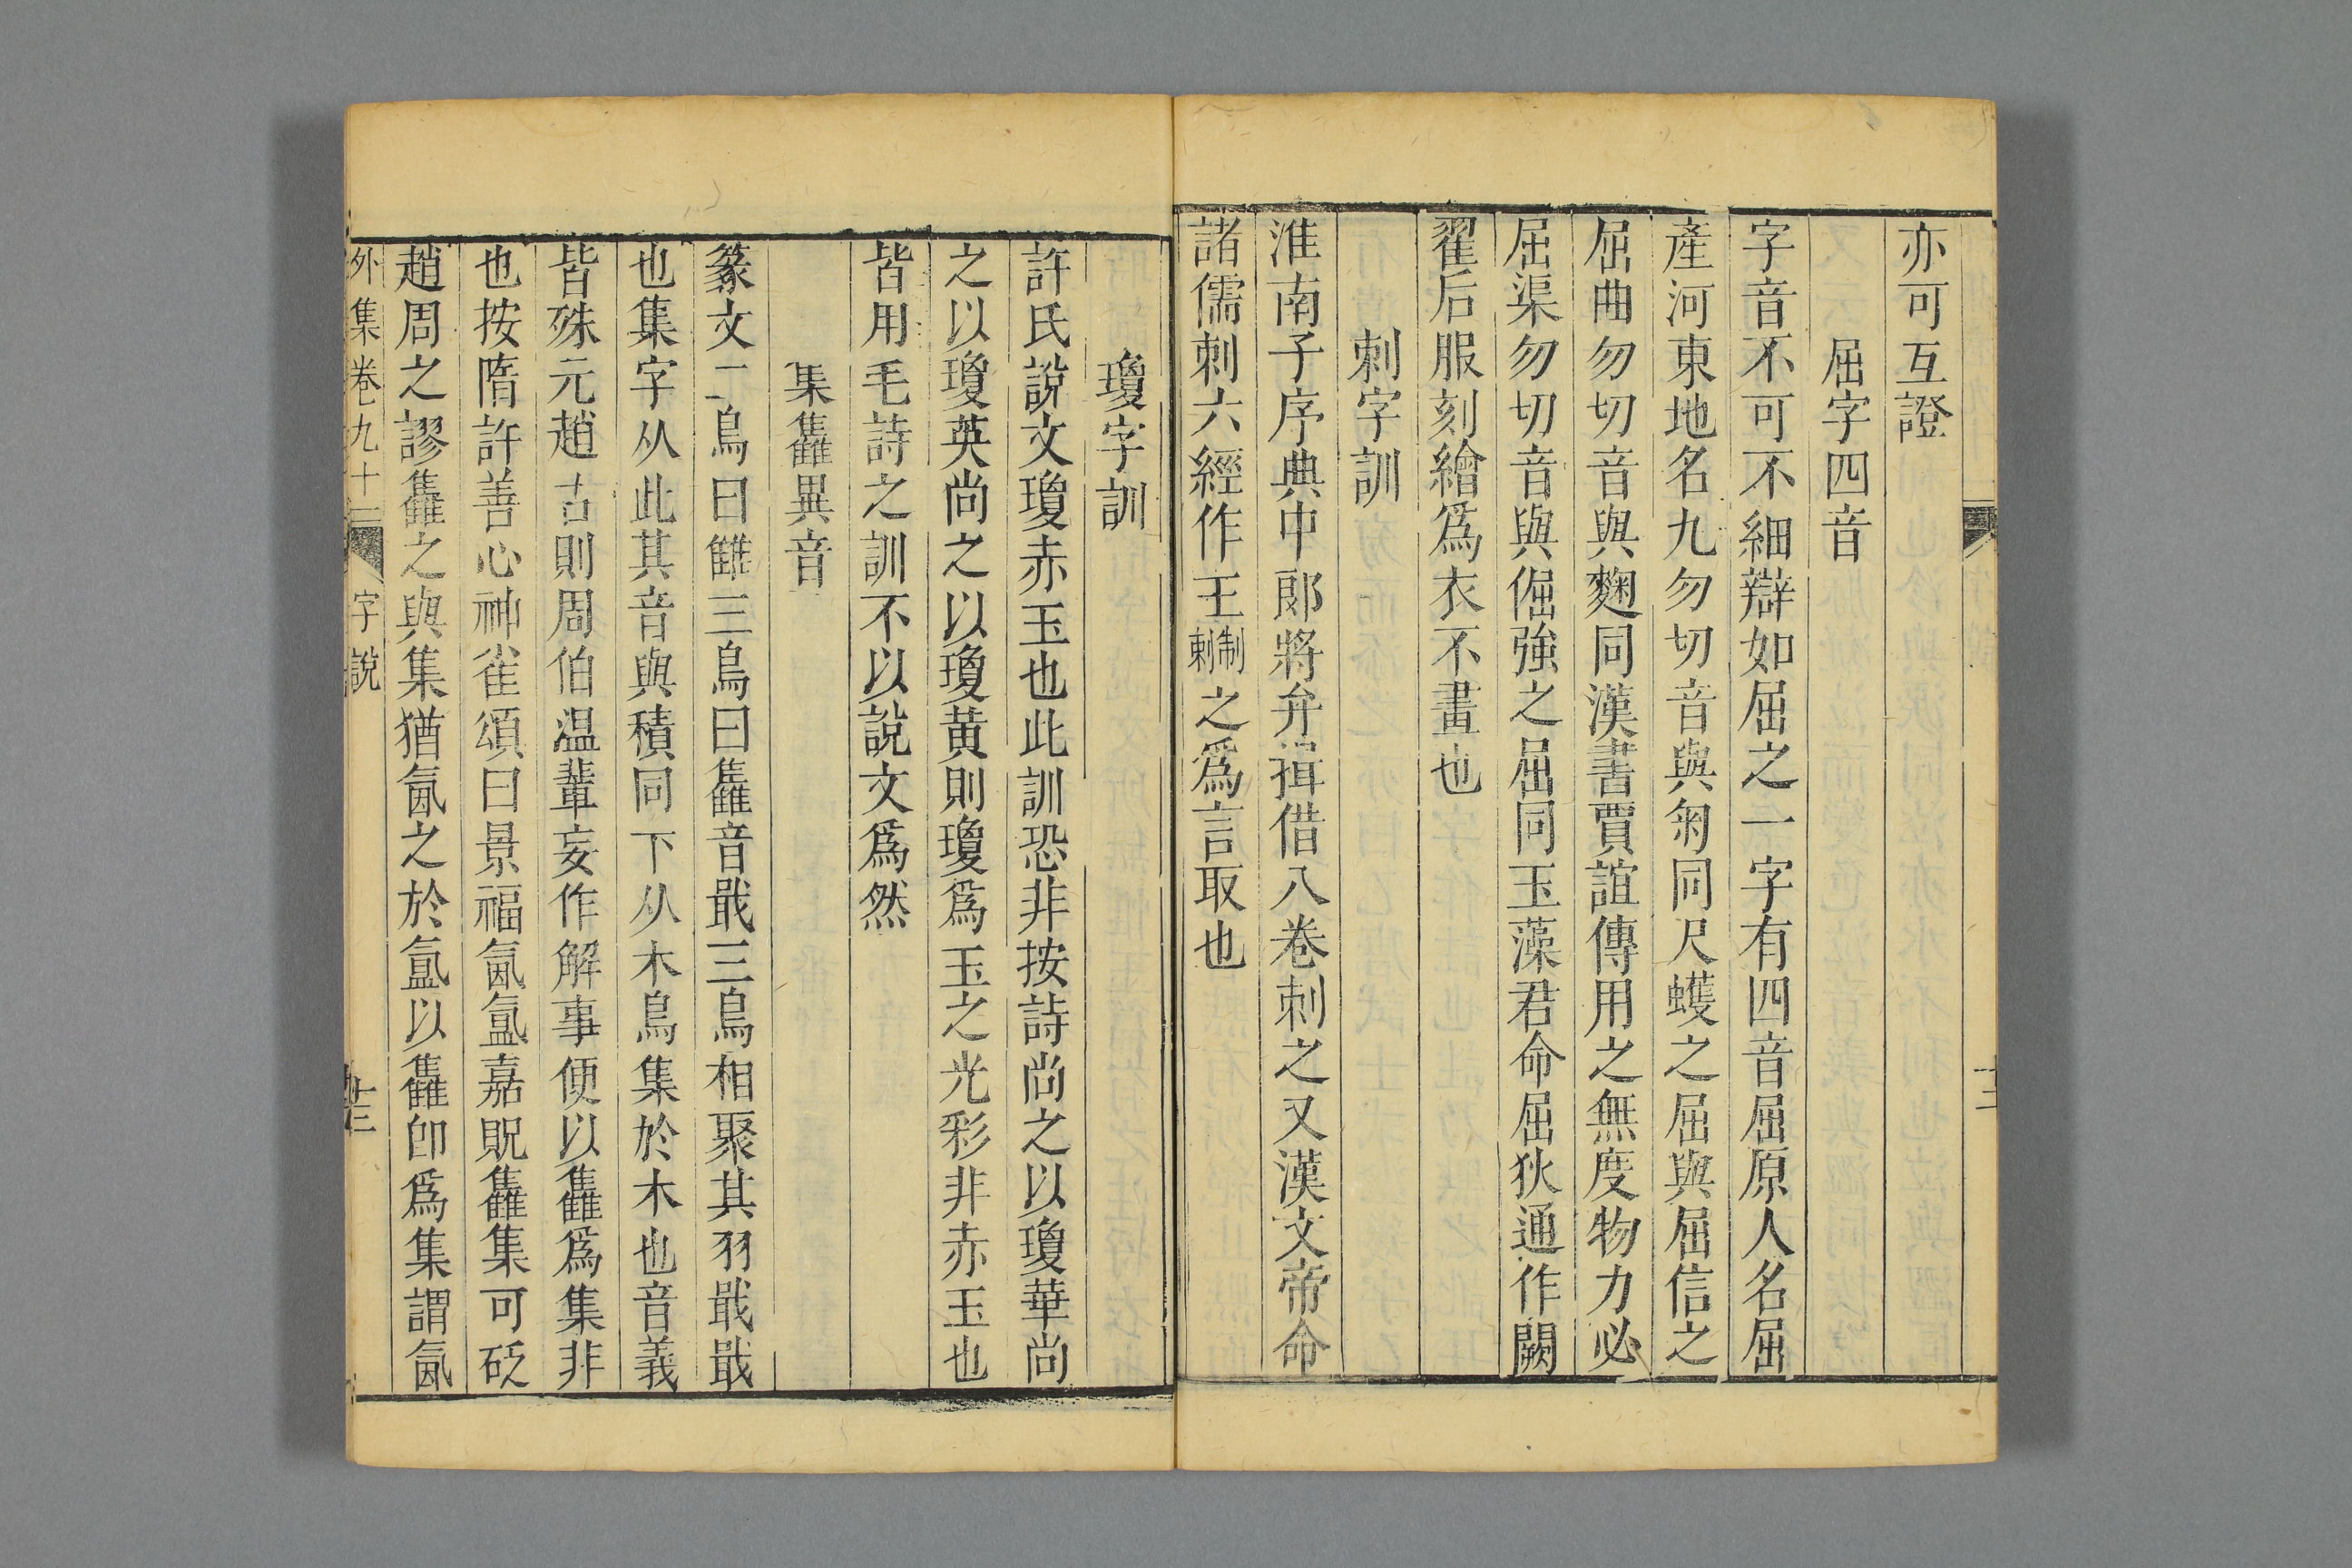 亦可互證
屈字四音
字音不可不細辯如屈之一字有四音屈原人名屈
產河東地名九勿切音與匊同尺蠖之屈與屈信之
屈曲勿切音與麴同漢書賈誼傳用之無度物力必
屈渠勿切音與倔強之屈同玉藻君命屈狄通作闕
翟后服刻繒爲衣不畫也
刺字訓
淮南子序典中郎將弁揖借八卷刺之又漢文帝命
諸儒刺六經作王制刺之爲言取也
瓊字訓
許氏說文瓊赤玉也此訓恐非按詩尚之以瓊華尚
之以瓊英尚之以瓊黄則瓊爲玉之光彩非赤玉也
皆用毛詩之訓不以說文爲然
集雥異音
篆文二鳥曰雔三鳥曰雥音戢三鳥相聚其羽戢戢
也集字从此其音與積同下从木鳥集於木也音義
皆殊元趙古則周伯温輩妄作解事便以雥爲集非
也按隋許善心神雀頌曰景福氤氲嘉貺雥集可砭
趙周之謬雥之與集猶氤之於氲以雥卽爲集謂氤
外集卷九十二 字說